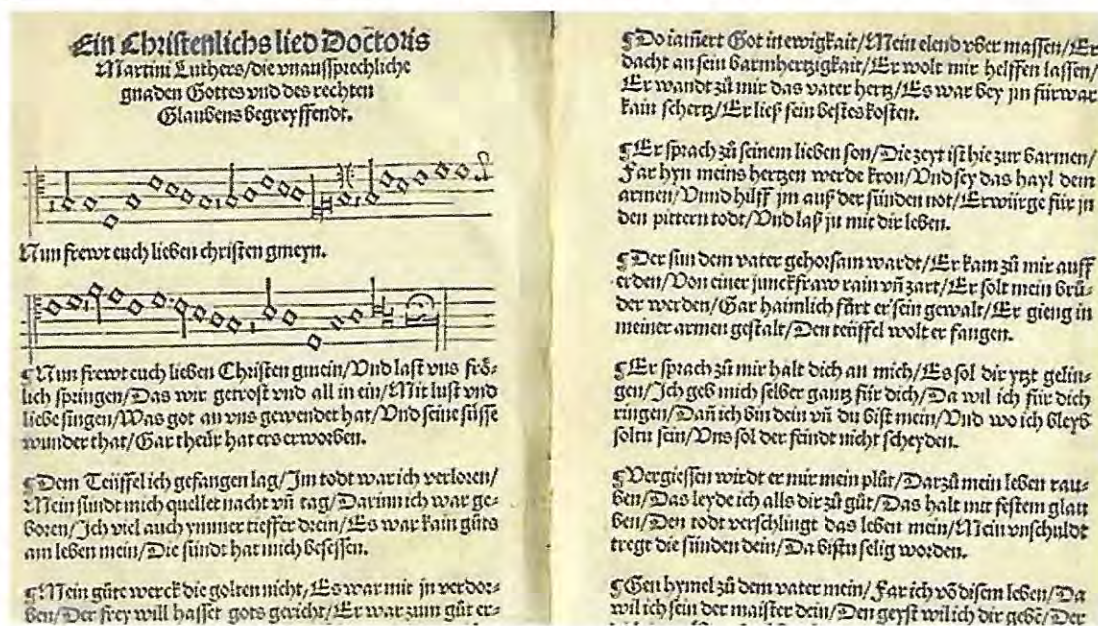 Ein Christenlichs lied Doctoris
Martini Luthers/die vnaussprechliche
gnaden Gottes vnd des rechten
Glaubens begreyffendt.
Nun frewt euch lieben christen gmeyn.
¶Nun frewt euch lieben Christen gmein/Vnd last vns frö-
lich springen/Das wir getrost vnd all in ein/Mit lust vnd
liebe singen/Was got an vns gewendet hat/Vnd seine süsse
wunder that/Gar theür hat ers erworben.
¶Dem Teüffel ich gefangen lag/Im todt war ich verloren/
Mein sündt mich quellet nacht vñ tag/Darinn ich war ge-
boren/Ich viel auch ymmer tieffer drein/Es war kain gůts
am leben mein/Die sündt hat mich besessen.
¶Mein gůte werck die golten nicht/Es war mit jn verdor-
ben/Der frey will hasset gots gericht/Er war zum gůt er-
¶Do iam̃ert Got in ewigkait/Mein elend vber massen/Er
dacht an sein barmhertzigkait/Er wolt mir helffen lassen/
Er wandt zů mir das vater hertz/Es war bey jm fürwar
kain schertz/Er ließ sein bestes kosten.
¶Er sprach zů seinem lieben son/Die zeyt ist hie zur barmen/
Far hyn meins hertzen werde kron/Vnd sey das hayl dem
armen/Vnnd hilff jm auß der sünden not/Erwürge für jn
den pittern todt/Vnd laß jn mit dir leben.
¶Der sun dem vater gehorsam wardt/Er kam zů mir auff
erden/Von einer junckfraw rain vñ zart/Er solt mein brů-
der werden/Gar haimlich fürt er sein gewalt/Er gieng in
meiner armen gestalt/Den teüffel wolt er fangen.
¶Er sprach zů mir halt dich an mich/Es sol dir ytzt gelin-
gen/Ich geb mich selber gantz für dich/Da wil ich für dich
ringen/Dañ ich bin dein vñ du bist mein/Vnd wo ich bleyb
soltu sein/Vns sol der feindt nicht scheyden.
¶Vergiessen wirdt er mir mein plůt/Darzů mein leben rau-
ben/Das leyde ich alls dir zů gůt/Das halt mit festem glau
ben/Den todt verschlingt das leben mein/Mein vnschuldt
tregt die sünden dein/Da bistu selig worden.
¶Gen hymel zů dem vater mein/Far ich võ disem leben/Da
wil ich sein der maister dein/Den geyst wil ich dir gebẽ/Der